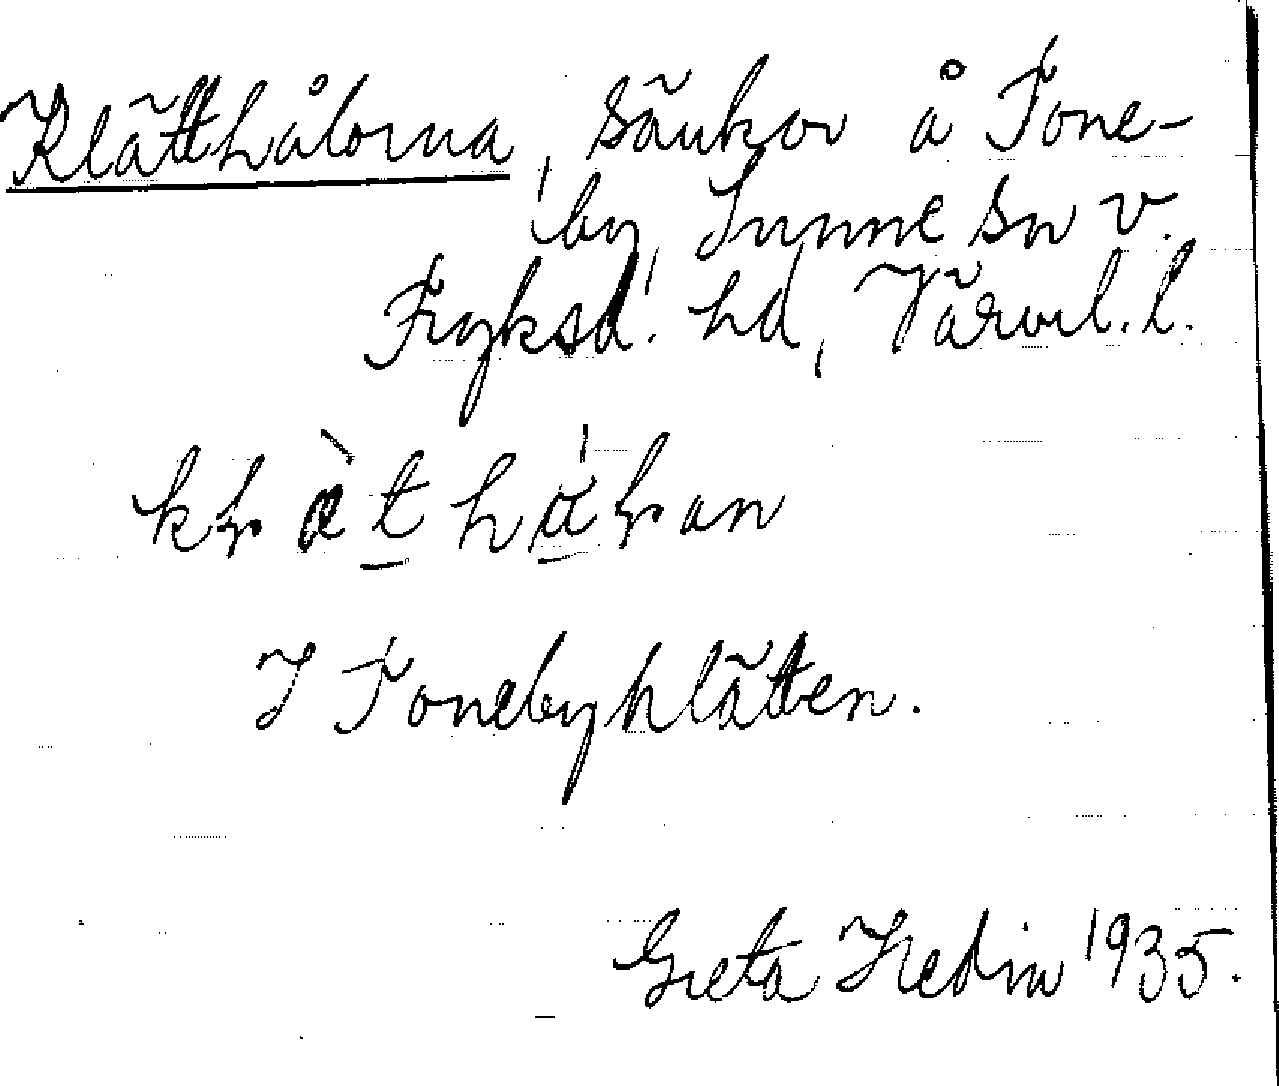 Klätthålorna, Sänkor å Tone-
by, Sunne Sn V.
Fryksd. hd, Värml. l.
I Tonebyklätten.
Greta Hedin 1935.